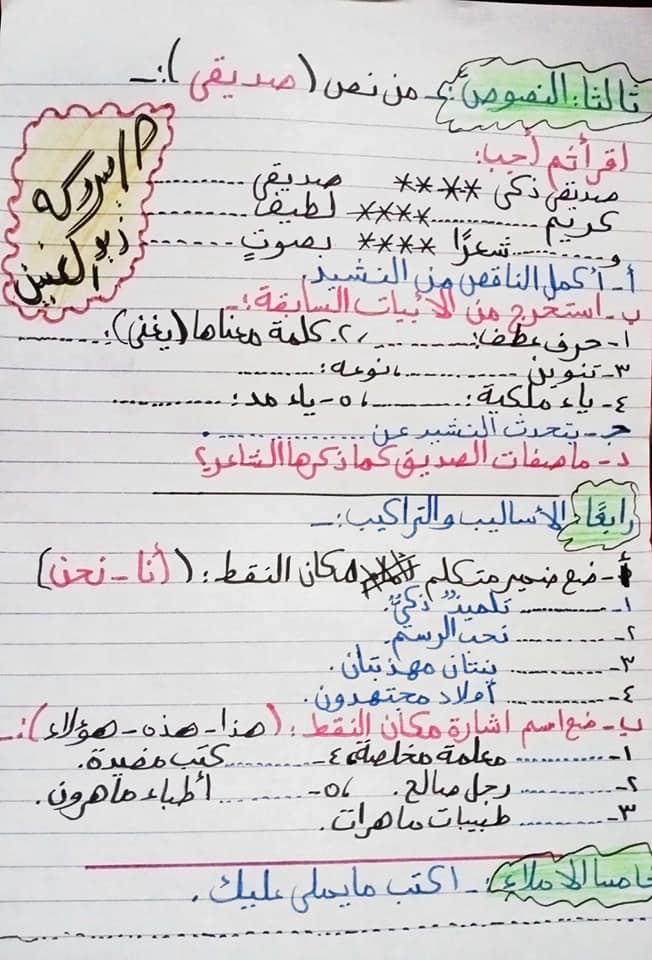 ثالثا: النصوص :ـ من نص (صديقي) :ـ
اقرأ ثم أجب:
صديقى ذكى **** صديقى ..........
كريم .......... **** لطيف ..........
و.......... شعرًا **** بصوتٍ ..........
أ- أكمل الناقص من النشيد.
ب- استخرج من الأبيات السابقة :ـ
١- حرف عطف: .......... ،٢- كلمة معناها (يغنى): ..........
٣- تنوين .......... ، نوعه: ..........
٤- ياء ملكية: .......... ،٥- ياء مد: ..........
جـ- يتحدث النشيد عن .......... .
د- ماصفات الصديق كما ذكرها الشاعر؟
رابعًا: الأساليب والتراكيب :ـ
أ- ضع ضمير متكلم مكان النقط: (أنا - نحن)
١- .......... تلميذٌ ذكىٌّ.
٢- .......... نحب الرسم.
٣- .......... بنتان مهذبتان.
٤- .......... أولاد مجتهدون.
ب- ضع اسم اشارة مكان النقط: (هذا - هذه - هؤلاء) :ـ
١- .......... معلمة مخلصة، ٤- .......... كتب مفيدة.
٢- .......... رجل صالح. ،٥- .......... أطباء ماهرون.
٣- .......... طبيبات ماهرات.
خامسا الاملاء :ـ اكتب مايملى عليك.